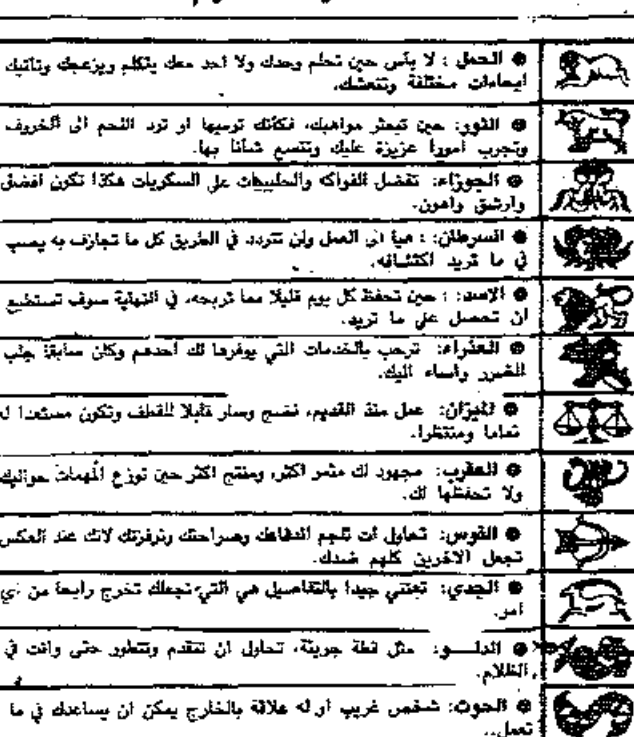 ● الحمل : لا بأس حين تحلم وحدك ولا احد معك يتكلم ويزعجك وتأتيك
ايحاءات مختلفة وتنعشك.
● الثور: حين تبعثر مواهبك، فكأنك ترميها او ترد اللحم الى الخروف
وتجرب امورا عزيزة عليك وتتسع شأنا بها.
● الجوزاء: تفضل الفواكه والطبيعيات على السكريات هكذا تكون افضل
وارشق واهون.
● السرطان: : هيا الى العمل ولن تتردد في الطريق كل ما تجازف به يصب
في ما تريد اكتشافه.
● الاسد: : حين تحفظ كل يوم قليلا مما تربحه، في النهاية سوف تستطيع
ان تحصل على ما تريد.
● العذراء: ترحب بالخدمات التي يوفرها لك احدهم وكان سابقا جلب
الضرر وأساء اليك.
● الميزان: عمل منذ القديم، نضج وصار قابلا للقطف وتكون مستعدا له
تماما ومنتظرا.
● العقرب: مجهود لك مثمر اكثر، ومنتج اكثر حين توزع المهمات حواليك
ولا تحفظها لك.
● القوس: تحاول ان تلجم اندفاعك وصراحتك ونرفزتك لانك عند العكس
تجعل الاخرين كلهم ضدك.
● الجدي: تعتني جيدا بالتفاصيل هي التي تجعلك تخرج رابحا من اي
امر.
● الدلـــو: مثل قطة جريئة، تحاول ان تتقدم وتتطور حتى وانت في
الظلام.
● الحوت: شخص غريب او له علاقة بالخارج يمكن ان يساعدك في ما
تعمل..